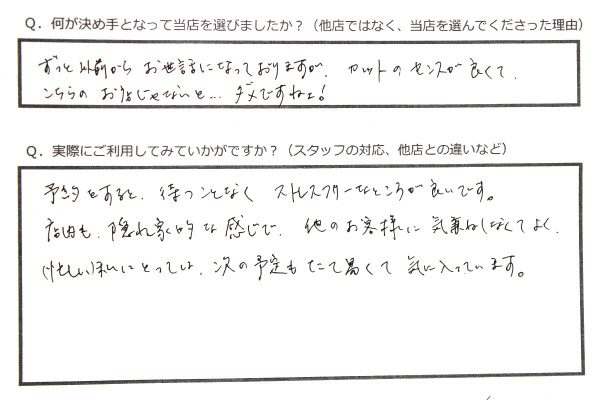 Q. 何が決め手となって当店を選びましたか？（他店ではなく、当店を選んでくださった理由）
ずっと以前からお世話になっておりますが、カットのセンスが良くて、
こちらのお店じゃないと…ダメですねェ！
Q. 実際にご利用してみていかがですか？（スタッフの対応、他店との違いなど）
予約をすると、待つことなくストレスフリーなところが良いです。
店内も、隠れ家的な感じで、他のお客様に気兼ねしなくてよく、
(忙しい)私にとっては、次の予定もたて易くて気に入っています。